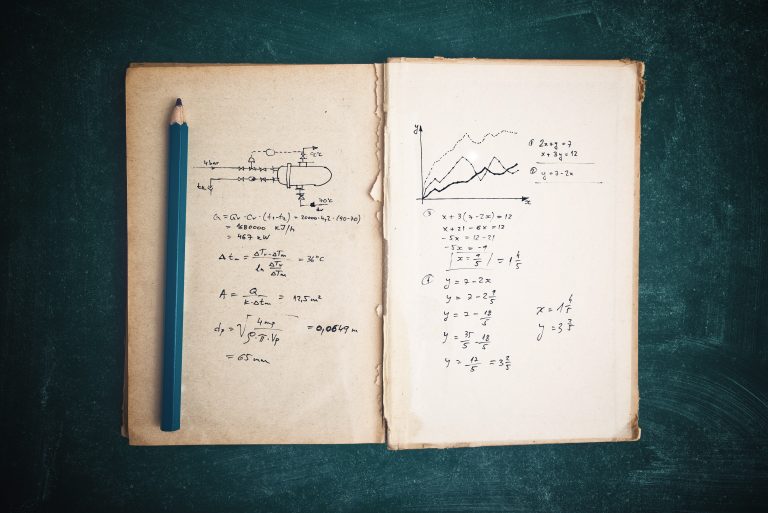 4 bar
70°C
G = Qv · Cv · (t1-t2) = 20000·4,2·(90-70)
= 1680000 kJ/h
= 467 kW
Δtm = ΔTv-ΔTm / ln ΔTv/ΔTm = 36°C
A = Qm / k·Δtm = 12,5 m²
dp = √ 4mp / ρ·π·Vp = 0,0649 m
= 65 mm
y
x
① 2x+y = 7
x+3y = 12
② y = 7-2x
③ x+3(7-2x) = 12
x+21-6x = 12
-5x = 12-21
-5x = -9
| x = 9/5 | = 1 4/5
④ y = 7-2x
y = 7-2 9/5
y = 7- 18/5
y = 35/5 - 18/5
y = 17/5 = 3 2/5
x = 1 4/5
y = 3 2/5